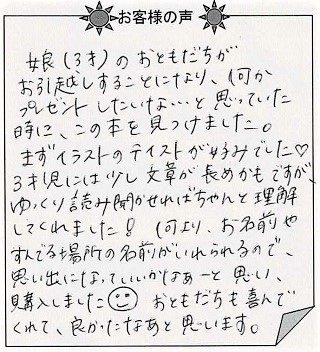 お客様の声
娘(3才)のおともだちが
お引越しすることになり、何か
プレゼントしたいな…と思っていた
時に、この本を見つけました。
まずイラストのテイストが好みでした♡
3才児には少し文章が長めかもですが、
ゆっくり読み聞かせればちゃんと理解
してくれました! 何より、お名前や
すんでる場所の名前がいれられるので、
思い出になっていいかなぁーと思い、
購入しました おともだちも喜んで
くれて、良かったなあと思います。